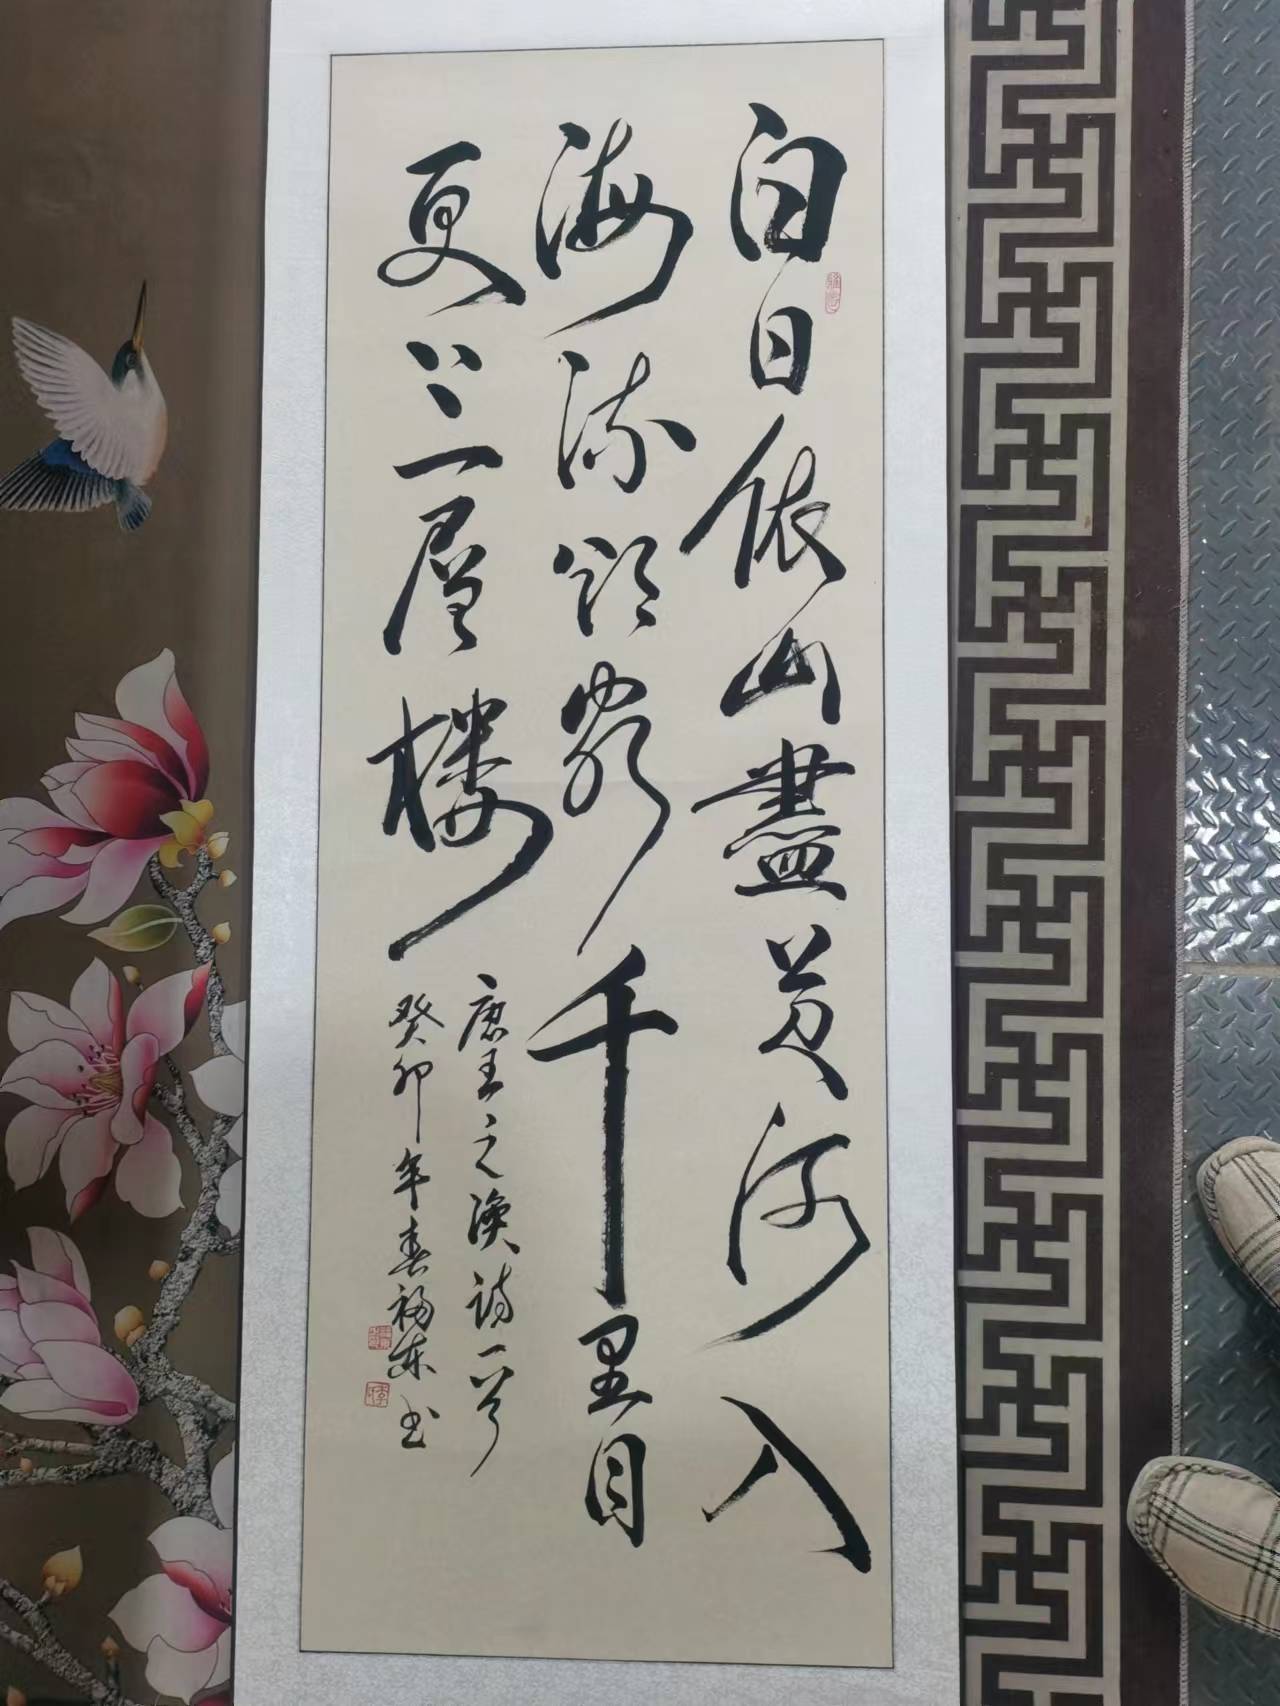 白日依山盡黄河入
海流欲窮千里目
更上一层楼
唐王之渙詩一首
癸卯年春福东书